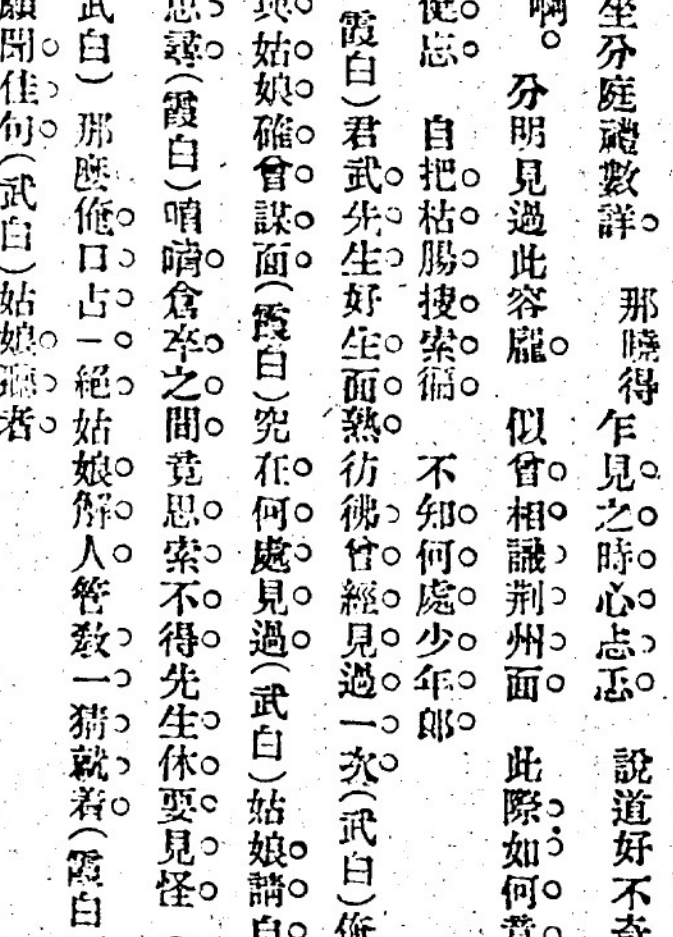 坐分庭禮數詳。 那曉得乍見之時心忐忑。 說道好不奇
啊。 分明見過此容龐。 似曾相識荆州面 此際如何竟
健忘。 自把枯腸搜索徧。 不知何處少年郎
霞白）君武先生好生面熟彷彿曾經見過一次（武白）俺
與姑娘確曾謀面（霞白）究在何處見過（武白）姑娘請自
思尋（霞白）唷唷倉卒之間竟思索不得先生休要見怪
武白）那麽俺口占一絕姑娘解人管敎一猜就着（霞白
願聞佳句（武白）姑娘聽者